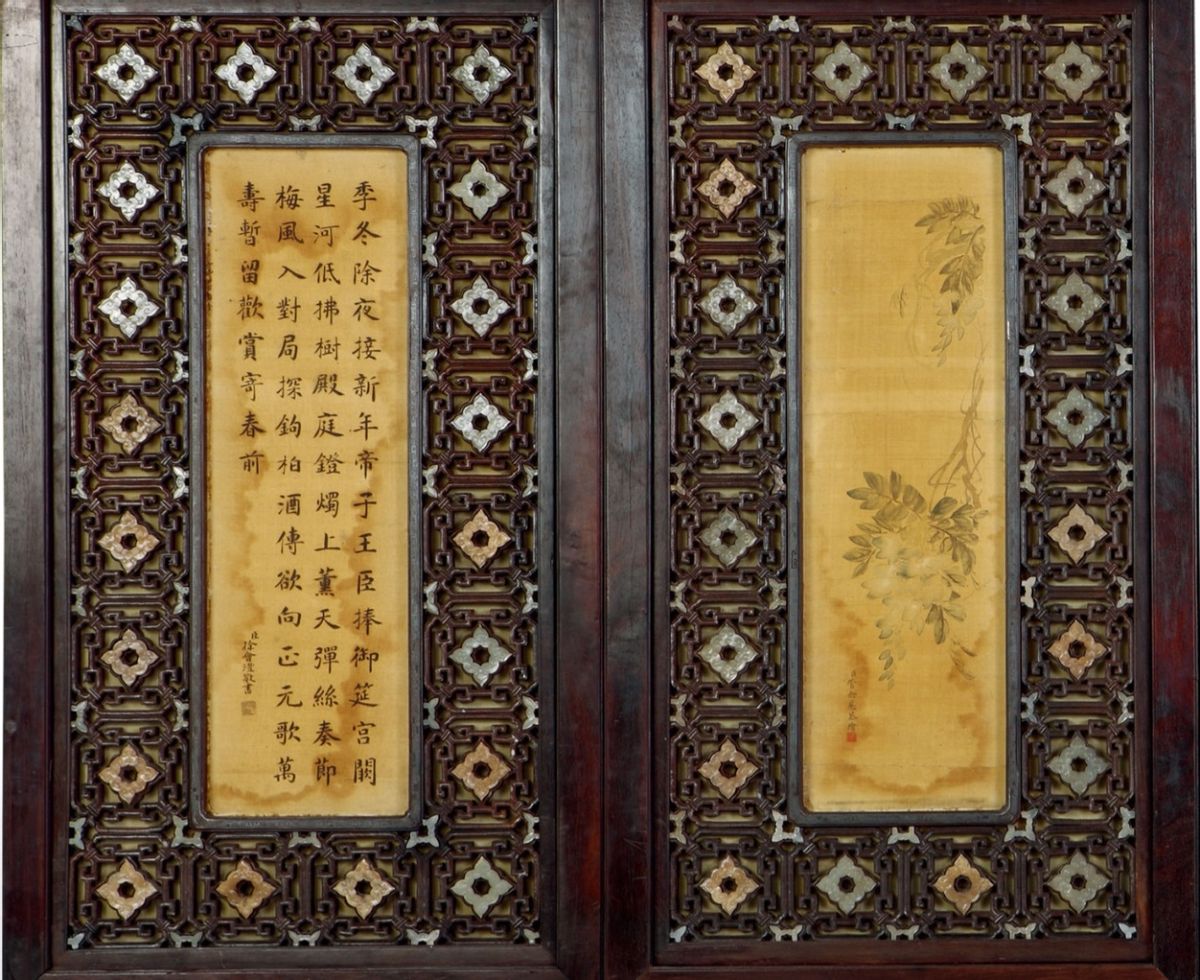 季冬除夜接新年帝子王臣捧御筵宮闕
星河低拂樹殿庭鐙燭上薰天彈絲奏節
梅風入對局探鉤柏酒傳欲向正元歌萬
壽暫留歡賞寄春前
臣徐會灃敬書
臣管劬安恭繪